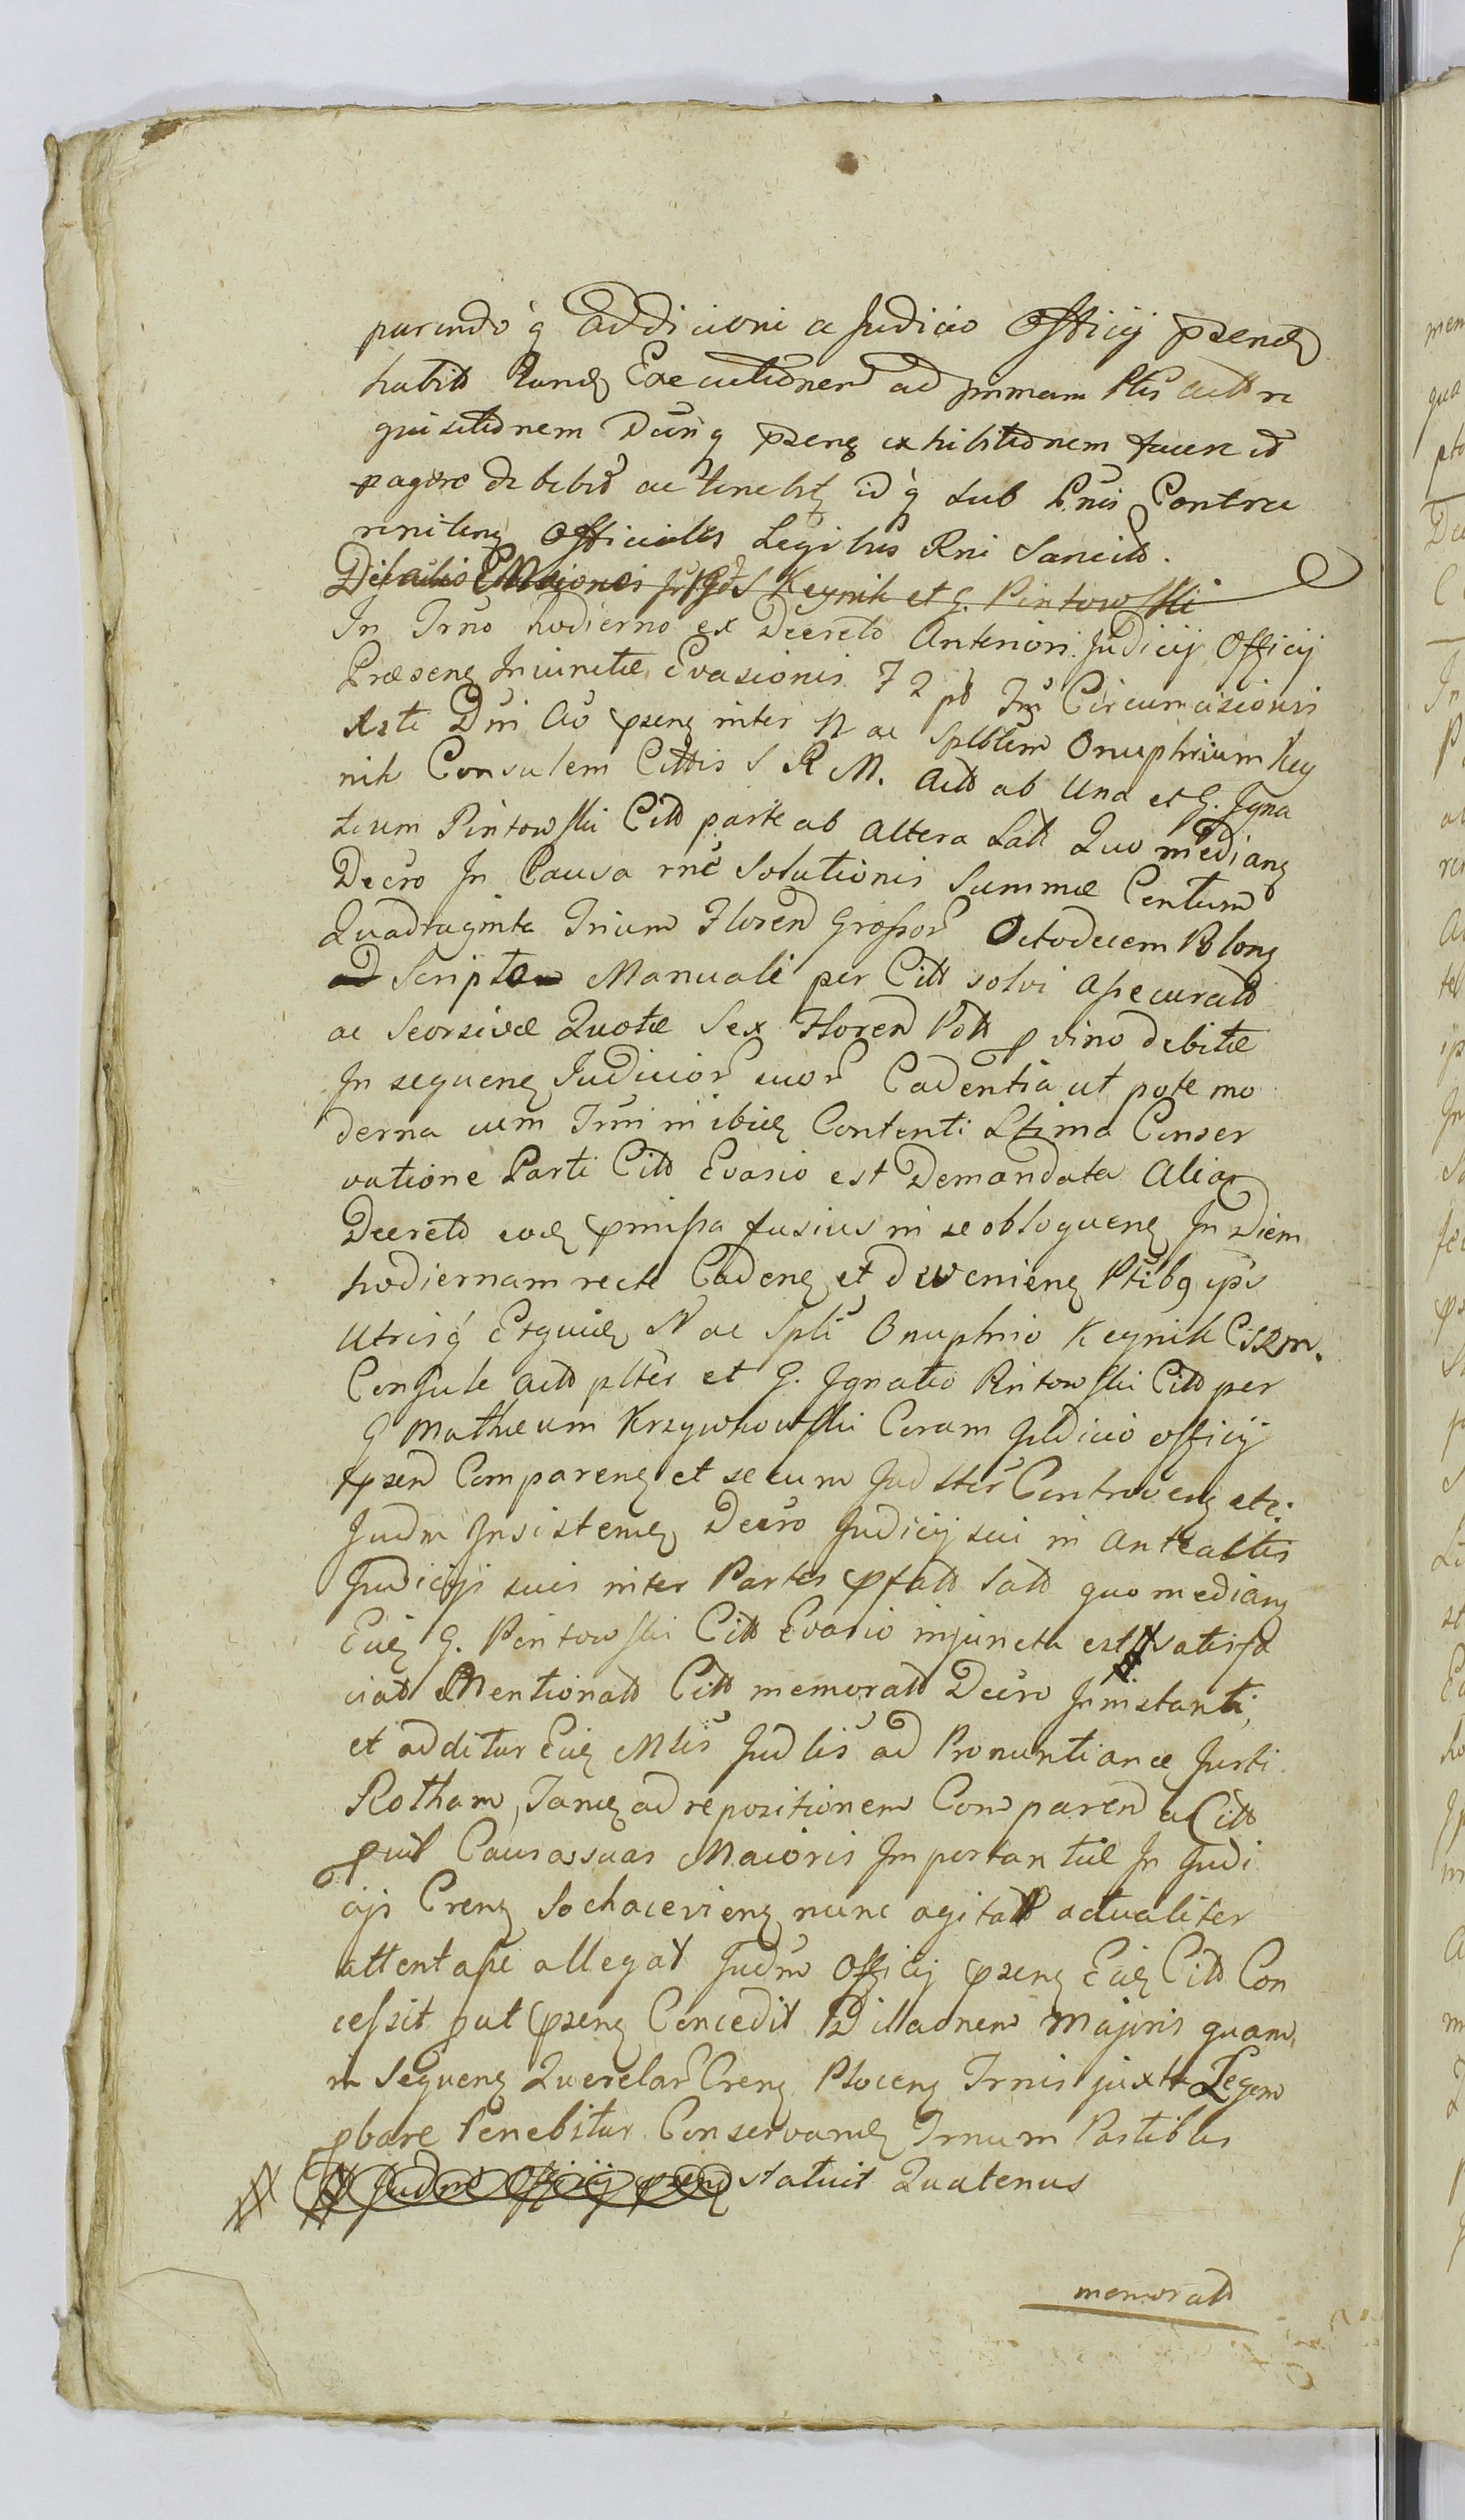 parendo q addicioni a Judicio Officij psend
habitt Executionem ad primam Ptis actt re
quisitionem Dein q psenz exhibitionem facere et
pagere debebit ac tenebit id q sub Pnis Contra
renitenz Officiales Legibus Rni Sancitt.
Dilatio Evasionis Keynik et G. Pintowski
In Trno hodierno ex Decreto Anteriori Judicij Officij
Præsenz Injunctæ Evasionis F 2 pt Fm Circumcisionis
festi Dni Ao psenz inter N ac Splblem Onuphrium Key
nik Consulem Cittis S R M. Actt ab Una et G. Igna
tium Pintowski Citt parte ab altera Latt Quo medianz
Decro In Causa rne Solutionis Summæ Centum
Quadraginta Trium Floren Grossor Octodecem Polonz
ad Scripto Manuali per Citt solvi assecuratt
ac Seorsivæ Quotæ Sex Floren Poll p vino debitæ
In sequenz Judicior suor Cadentia ut pote mo
derna cum Trni in ibidz Contenti Ltima Conser
vatione Parti Citt Evasio est Demandata Alias
Decreto eodz pmissa fusius in se obloquenz In Diem
hodiernam recte Cadenz et devenienz Ptibq ipis
Utrisq N ac Spli Onuphrio Keynik CSRM.
Consule actt plter et G. Ignatio Pintowski Citt per
G Mathæum Krzywkowski Coram Judicio officij
psen Comparenz et secum Judlter Controvenz etc.
Judm Insistendz Decro Judicij sui in anteactis
Judicijs suis inter Partes pfatt Latt quo medianz
Eidz G. Pintowski Citt Evasio injuncta est satisfa
ciat Mentionatt Citt memoratt Decro In instanti,
et additur Eidz Mlis Judlis ad Pronuntiandz Justi
Rotham, Tandz ad repositionem Comparen a Citt
quit Causas suas Maioris Importantiæ In Judi
cijs Crenz Sochacevienz nunc agitatt actualiter
attentasse allegat Judm Officij psenz Eidz Citt Con
cessit put psenz Concedit Dillaonem Majoris quam
in Sequenz Querelar Crenz Plocenz Trnis juxta Legem
pbare Tenebitur Conservandz Trnum Partibus
Judm Officij psenz statuit Quatenus
memoratt